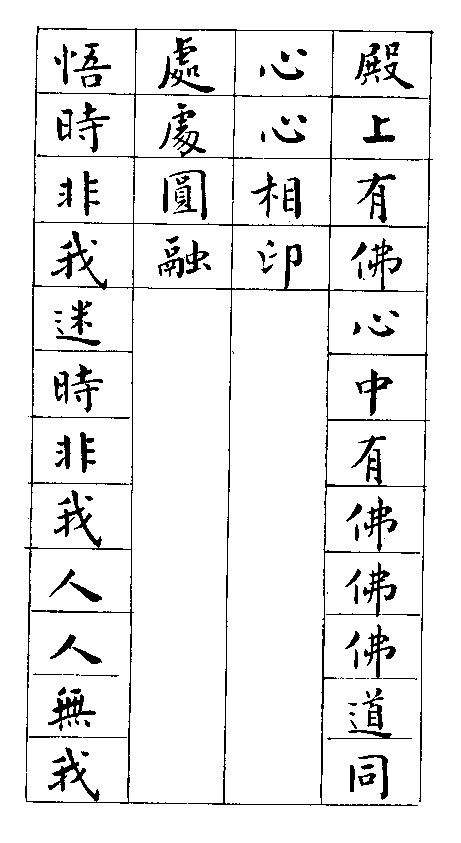 殿上有佛心中有佛佛佛道同
心心相印
處處圓融
悟時非我迷時非我人人無我